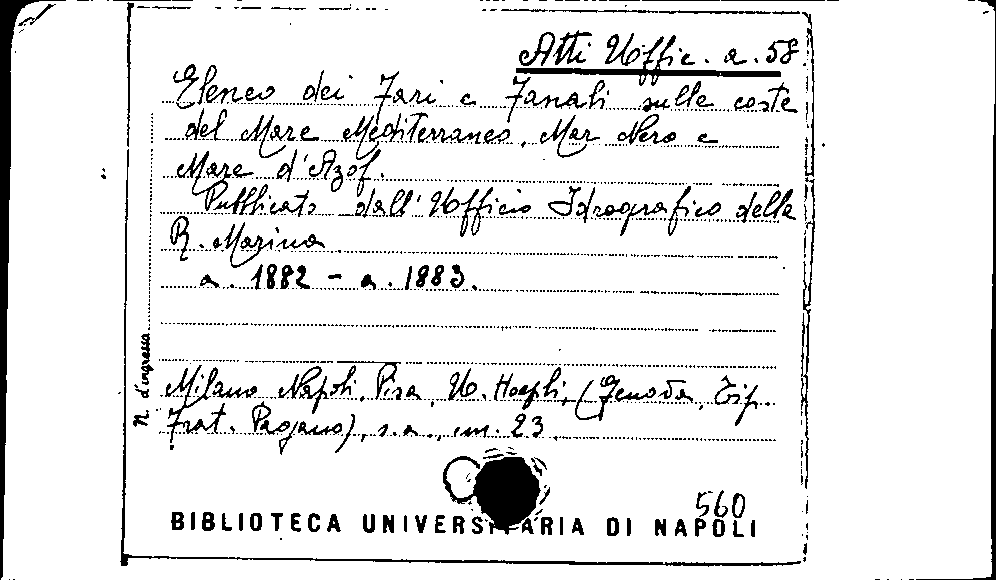 Atti Uffic. a. 58.
Elenco dei Fari e Fanali sulle coste
del Mare Mediterraneo, Mar Nero e
Mare d'Azof.
Pubblicato dall'Ufficio Idrografico della
R. Marina
a. 1882 - a. 1883.
N. d'ingresso
Milano Napoli, Pisa, U. Hoepli, (Genova, Tip.
Frat. Pagano), s.a., cm. 23.
560
BIBLIOTECA UNIVERSITARIA DI NAPOLI